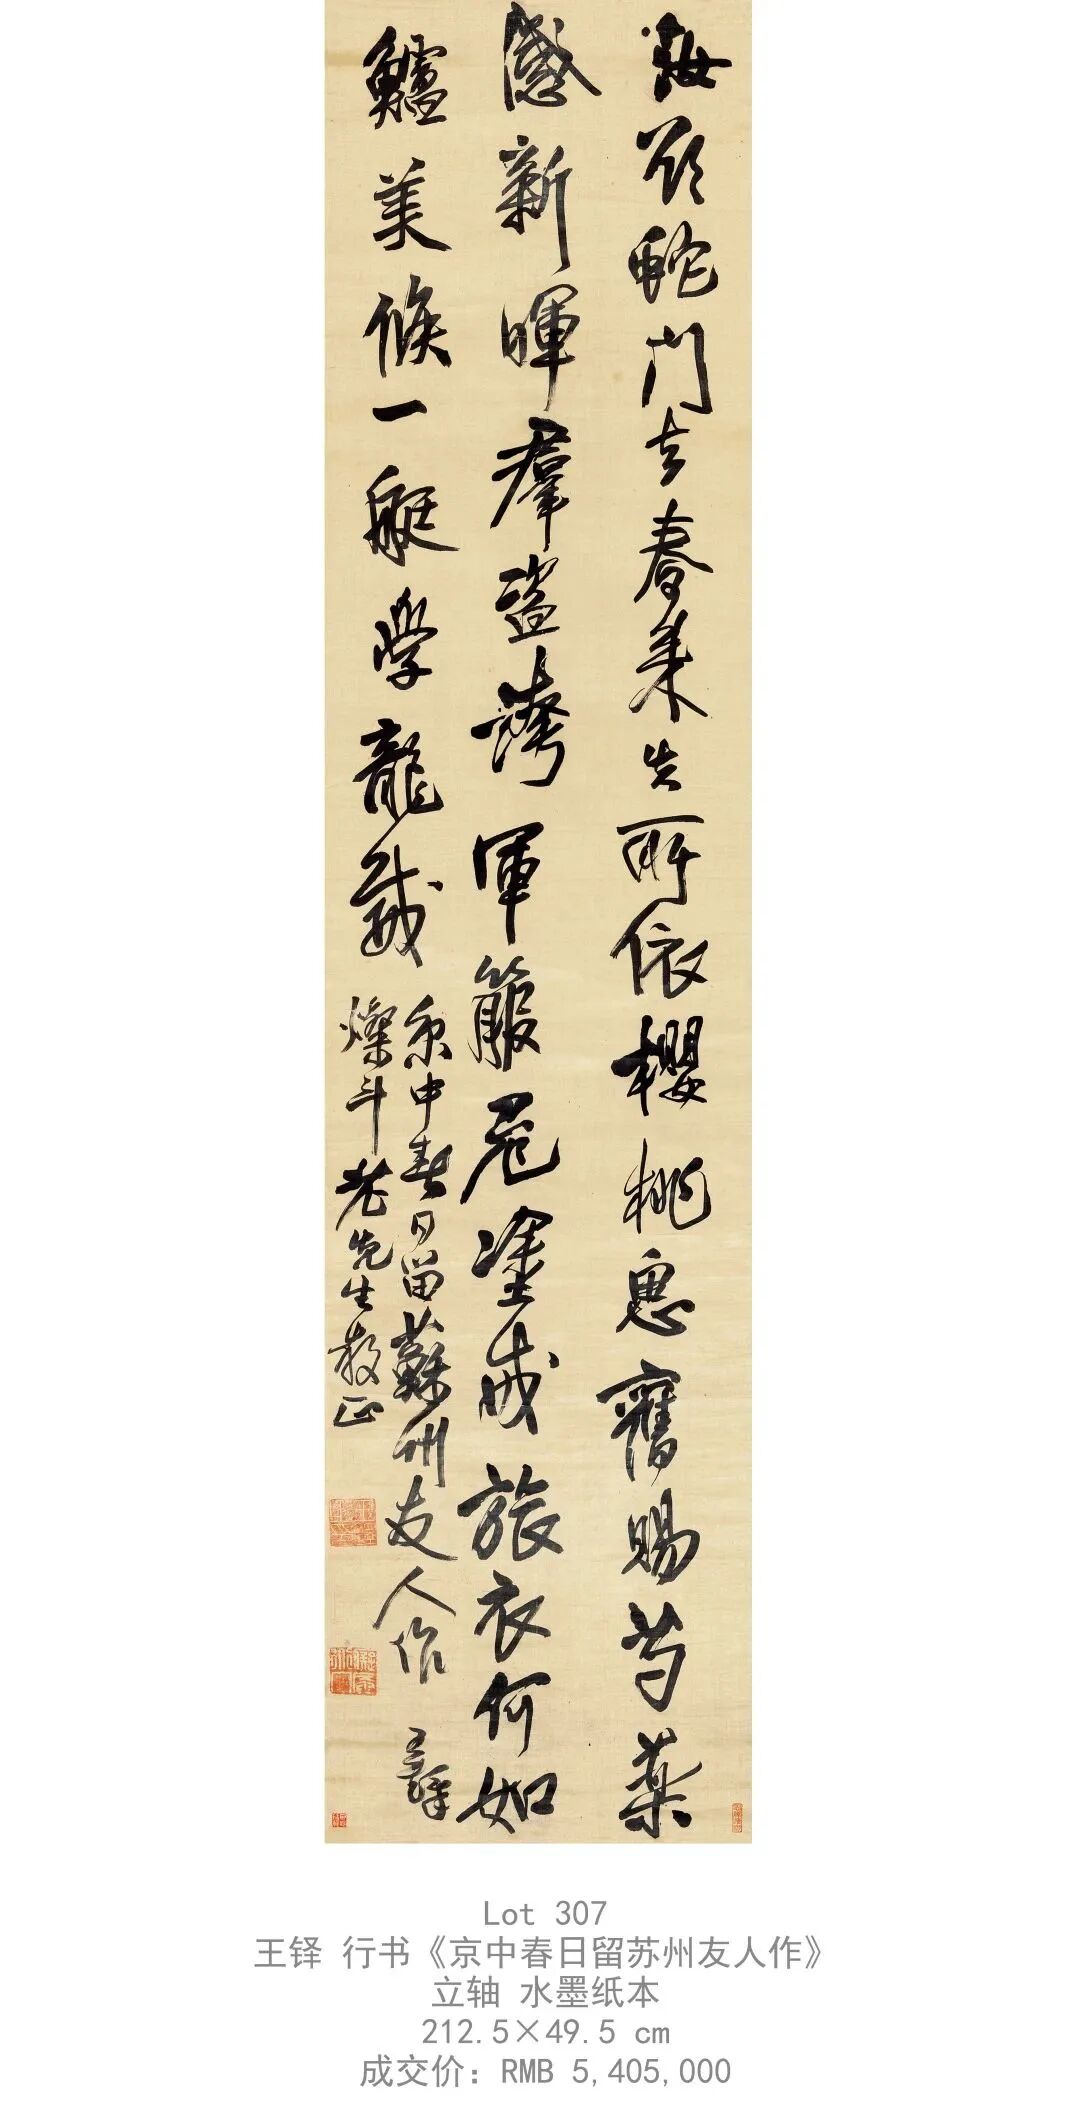 欲蛇門去春来失所依櫻桃思舊賜芍藥
感新暉羣盜誇軍箙危塗成旅衣何如
鱸美候一艇學龍威
京中春日留蘇州友人作 王鐸
燦斗老先生教正
Lot 307
王铎 行书《京中春日留苏州友人作》
立轴 水墨纸本
212.5×49.5 cm
成交价：RMB 5,405,000